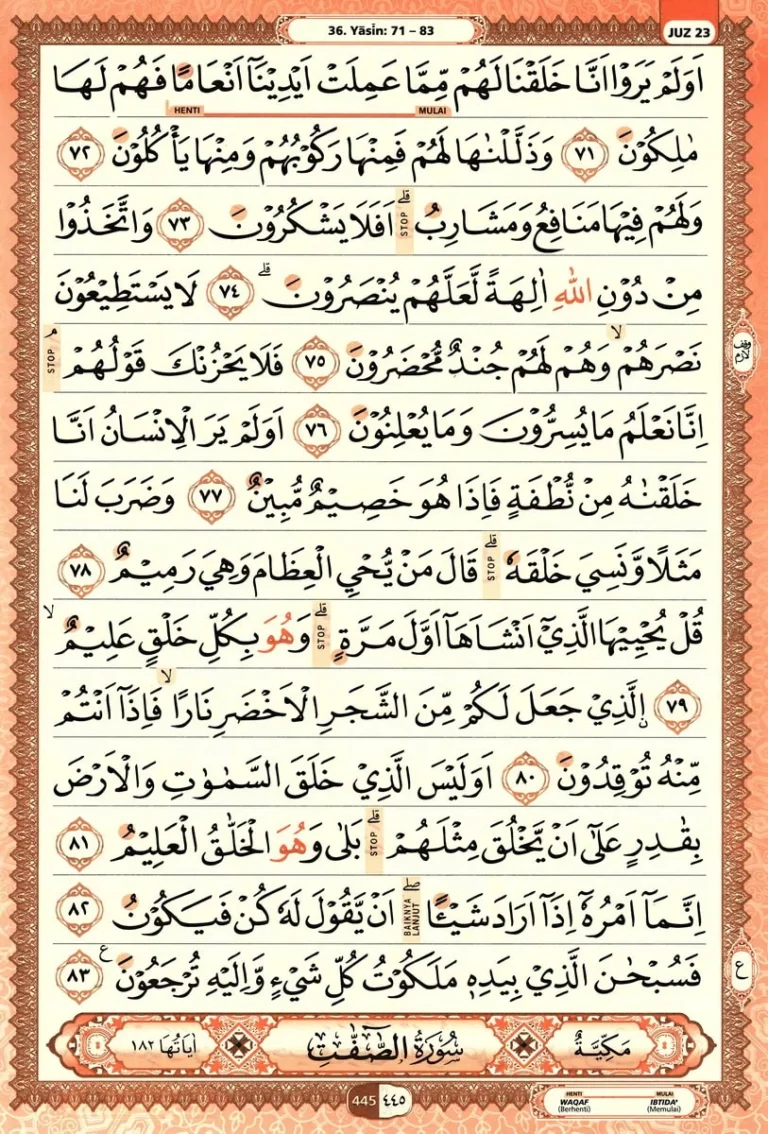 36. Yāsīn: 71 – 83
JUZ 23
اَوَلَمْ يَرَوْا اَنَّا خَلَقْنَا لَهُمْ مِّمَّا عَمِلَتْ اَيْدِيْنَآ اَنْعَامًا فَهُمْ لَهَا
HENTI MULAI
مٰلِكُوْنَ ٧١ وَذَلَّلْنٰهَا لَهُمْ فَمِنْهَا رَكُوْبُهُمْ وَمِنْهَا يَأْكُلُوْنَ ٧٢
وَلَهُمْ فِيْهَا مَنَافِعُ وَمَشَارِبُ ۗ STOP اَفَلَا يَشْكُرُوْنَ ٧٣ وَاتَّخَذُوْا
مِنْ دُوْنِ اللّٰهِ اٰلِهَةً لَّعَلَّهُمْ يُنْصَرُوْنَ ۗ ٧٤ لَا يَسْتَطِيْعُوْنَ
نَصْرَهُمْ ۙ وَهُمْ لَهُمْ جُنْدٌ مُّحْضَرُوْنَ ٧٥ فَلَا يَحْزُنْكَ قَوْلُهُمْ ۘ STOP
وقف لازم
اِنَّا نَعْلَمُ مَا يُسِرُّوْنَ وَمَا يُعْلِنُوْنَ ٧٦ اَوَلَمْ يَرَ الْاِنْسَانُ اَنَّا
خَلَقْنٰهُ مِنْ نُّطْفَةٍ فَاِذَا هُوَ خَصِيْمٌ مُّبِيْنٌ ٧٧ وَضَرَبَ لَنَا
مَثَلًا وَّنَسِيَ خَلْقَهٗ ۗ STOP قَالَ مَنْ يُّحْيِ الْعِظَامَ وَهِيَ رَمِيْمٌ ٧٨
قُلْ يُحْيِيْهَا الَّذِيْٓ اَنْشَاَهَآ اَوَّلَ مَرَّةٍ ۗ STOP وَهُوَ بِكُلِّ خَلْقٍ عَلِيْمٌ ۙ
٧٩ ۨالَّذِيْ جَعَلَ لَكُمْ مِّنَ الشَّجَرِ الْاَخْضَرِ نَارًا ۙ فَاِذَآ اَنْتُمْ
مِّنْهُ تُوْقِدُوْنَ ٨٠ اَوَلَيْسَ الَّذِيْ خَلَقَ السَّمٰوٰتِ وَالْاَرْضَ
بِقٰدِرٍ عَلٰٓى اَنْ يَّخْلُقَ مِثْلَهُمْ ۗ STOP بَلٰى وَهُوَ الْخَلّٰقُ الْعَلِيْمُ ٨١
اِنَّمَآ اَمْرُهٗٓ اِذَآ اَرَادَ شَيْـًٔا ۖ BAIKNYA LANJUT اَنْ يَّقُوْلَ لَهٗ كُنْ فَيَكُوْنُ ٨٢
فَسُبْحٰنَ الَّذِيْ بِيَدِهٖ مَلَكُوْتُ كُلِّ شَيْءٍ وَّاِلَيْهِ تُرْجَعُوْنَ ࣖ ٨٣
ع
مَكِّيَّةٌ سُوْرَةُ الصّٰٓفّٰتِ اٰيَاتُهَا ١٨٢
445 ٤٤٥
HENTI MULAI
WAQAF IBTIDA'
(Berhenti) (Memulai)